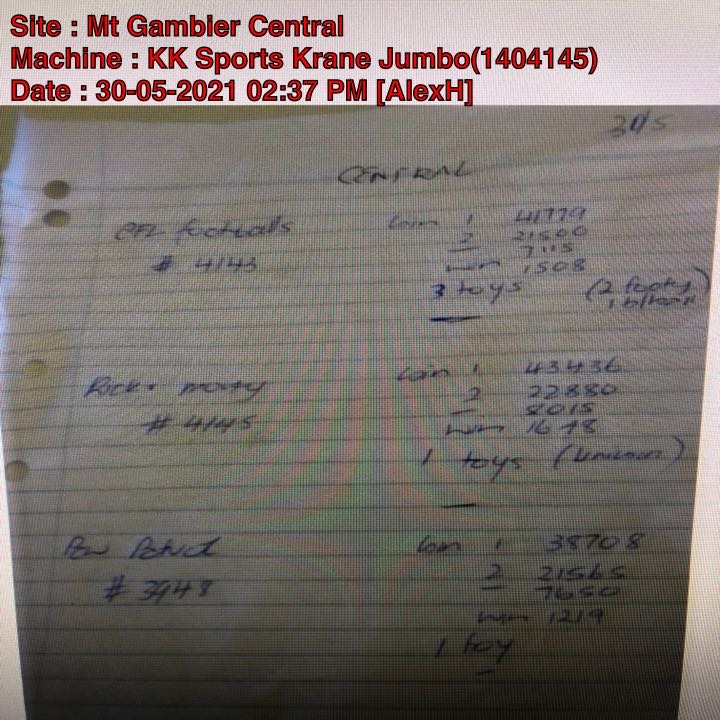 Site : Mt Gambier Central
Machine : KK Sports Krane Jumbo(1404145)
Date : 30-05-2021 02:37 PM [AlexH]
CENTRAL
AFL footballs
# 4143
Coin 1 41779
2 21500
7115
win 1508
3 toys (2 footy
Rick + morty
# 4145
Coin 1 43436
2 22880
8015
win 1648
1 toys (unicorn)
Paw Patrol
# 3948
Coin 1 38708
2 21565
7650
win 1219
1 toy